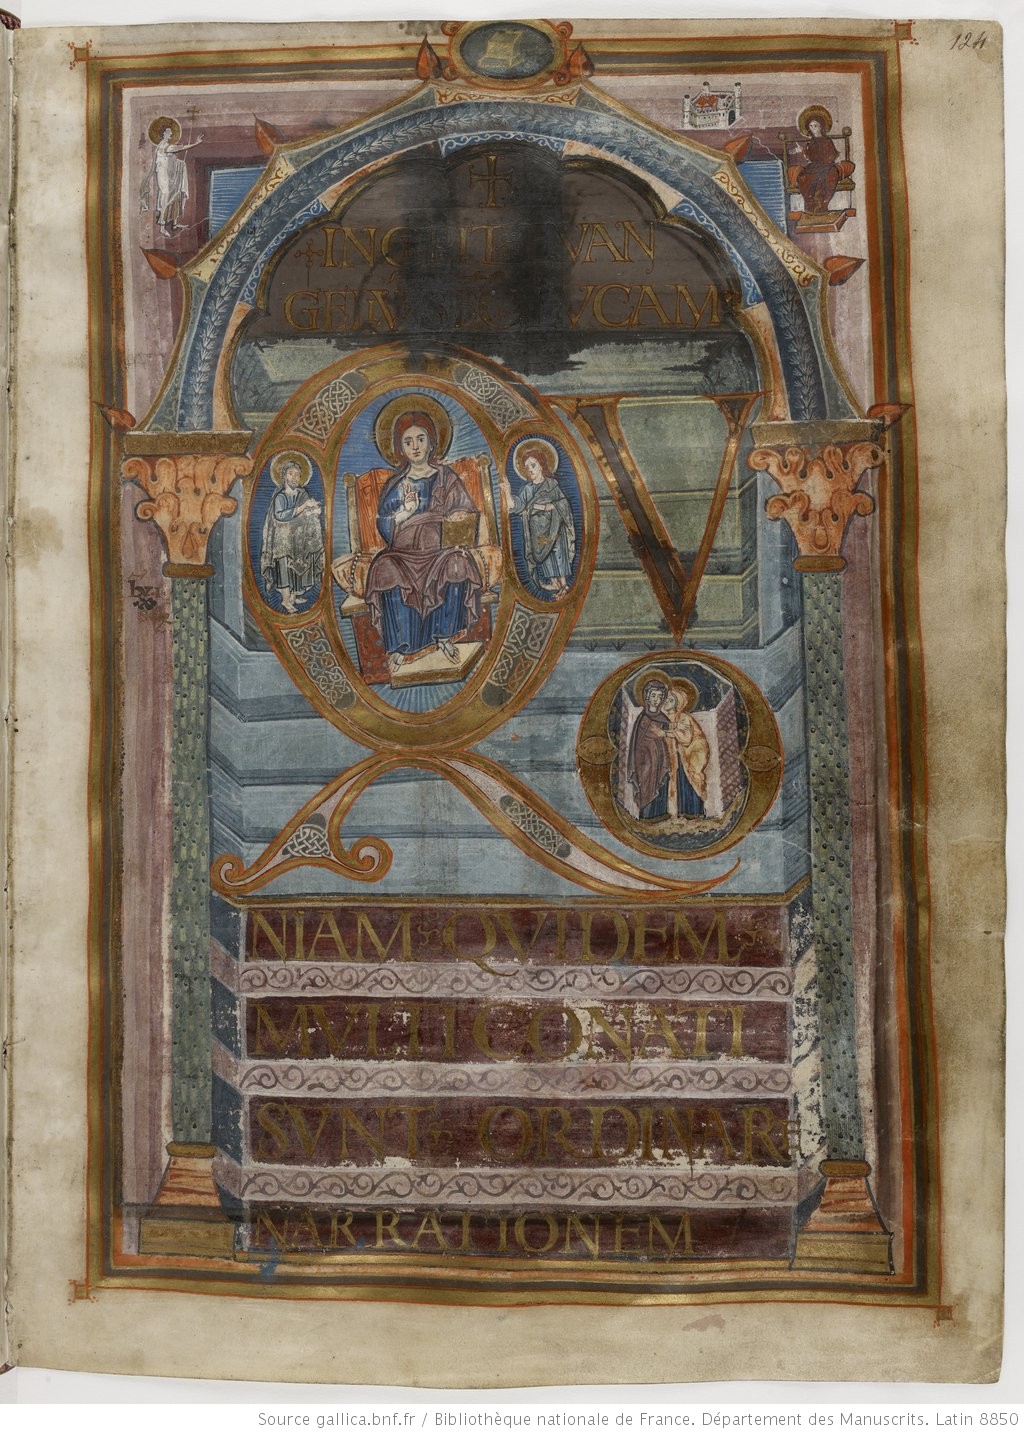 124
INCIPIT EVAN
GELIVM SEC LVCAM
QVO
NIAM QVIDEM
MVLTI CONATI
SVNT ORDINARE
NARRATIONEM
Source gallica.bnf.fr / Bibliothèque nationale de France. Département des Manuscrits. Latin 8850